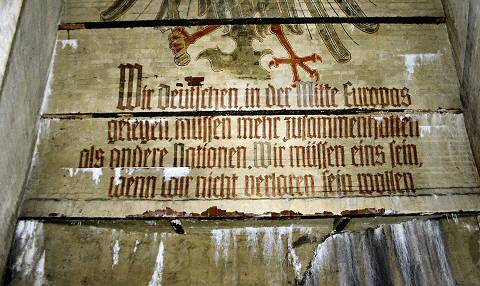 Wir Deutschen, in der Mitte Europas
gelegen müssen mehr zusammenhalten
als andere Nationen. Wir müssen eins sein,
wenn wir nicht verloren sein wollen